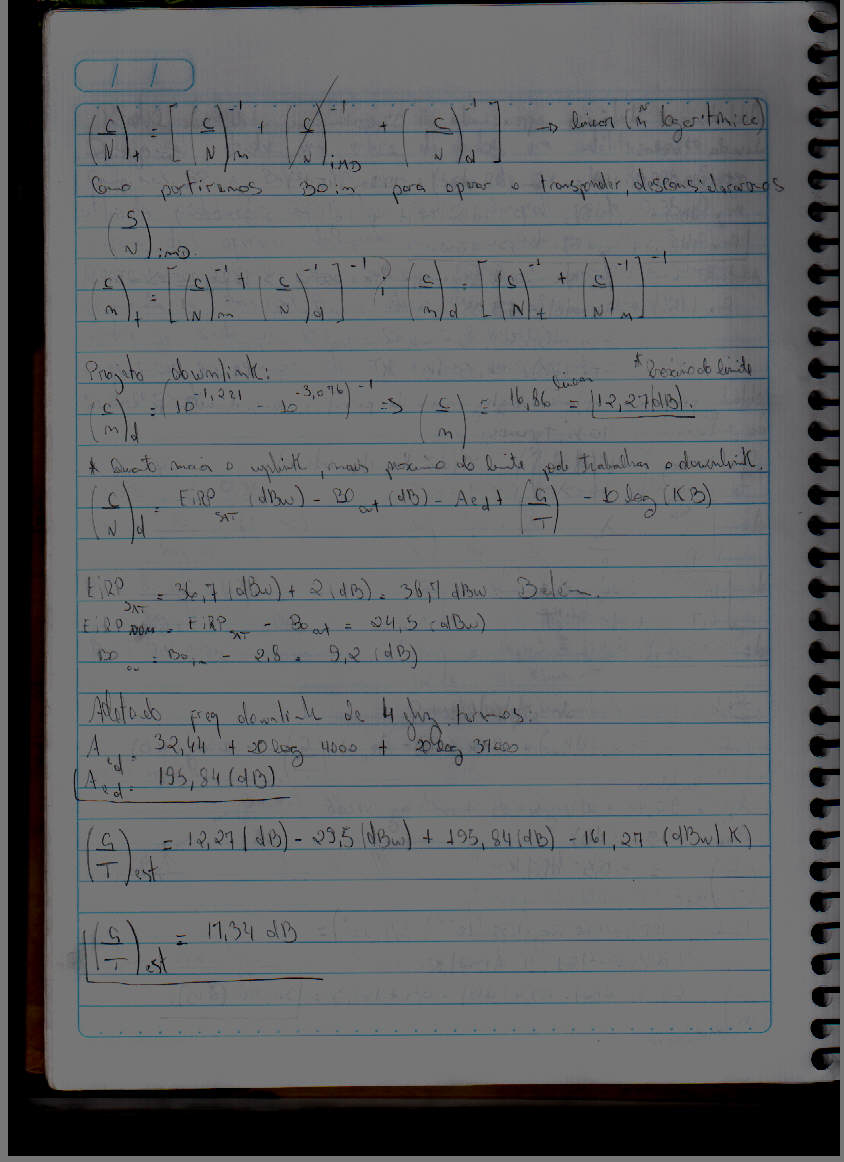 (C/N)_t = [(C/N)_m^-1 + (C/N)_iMD^-1 + (C/N)_d^-1] → linear (ñ logaritmica)
Como partiremos BOin para operar o transponder, desconsideraremos
(S/N)_iMD.
(C/n)_t = [(C/N)_m^-1 + (C/N)_d^-1]^-1 ; (C/m)_d = [(C/N)_t^-1 + (C/N)_m^-1]^-1
Projeto downlink: * do limite
(C/m)_d = (10^-1,221 - 10^-3,076)^-1 => (C/m) = 16,86 linear = 12,27(dB).
* Quanto maior o uplink, mais próximo do limite pode trabalhar o downlink.
(C/N)_d = EiRP_SAT (dBw) - BO_out (dB) - Ae_d + (G/T) - 10 log (KB)
EiRP_SAT = 36,7 (dBw) + 2 (dB) = 38,7 dBw Belém.
EiRP = EiRP_SAT - BO_out = 24,5 (dBw)
BO_ou = BO_in - 2,8 = 9,2 (dB)
Adotado freq downlink de 4 ghz termos:
A_ed = 32,44 + 20 log 4000 + 20 log 37000
A_ed = 195,84 (dB)
(G/T)_est = 12,27 (dB) - 29,5 (dBw) + 195,84 (dB) - 161,27 (dBw/K)
(G/T)_est = 17,34 dB